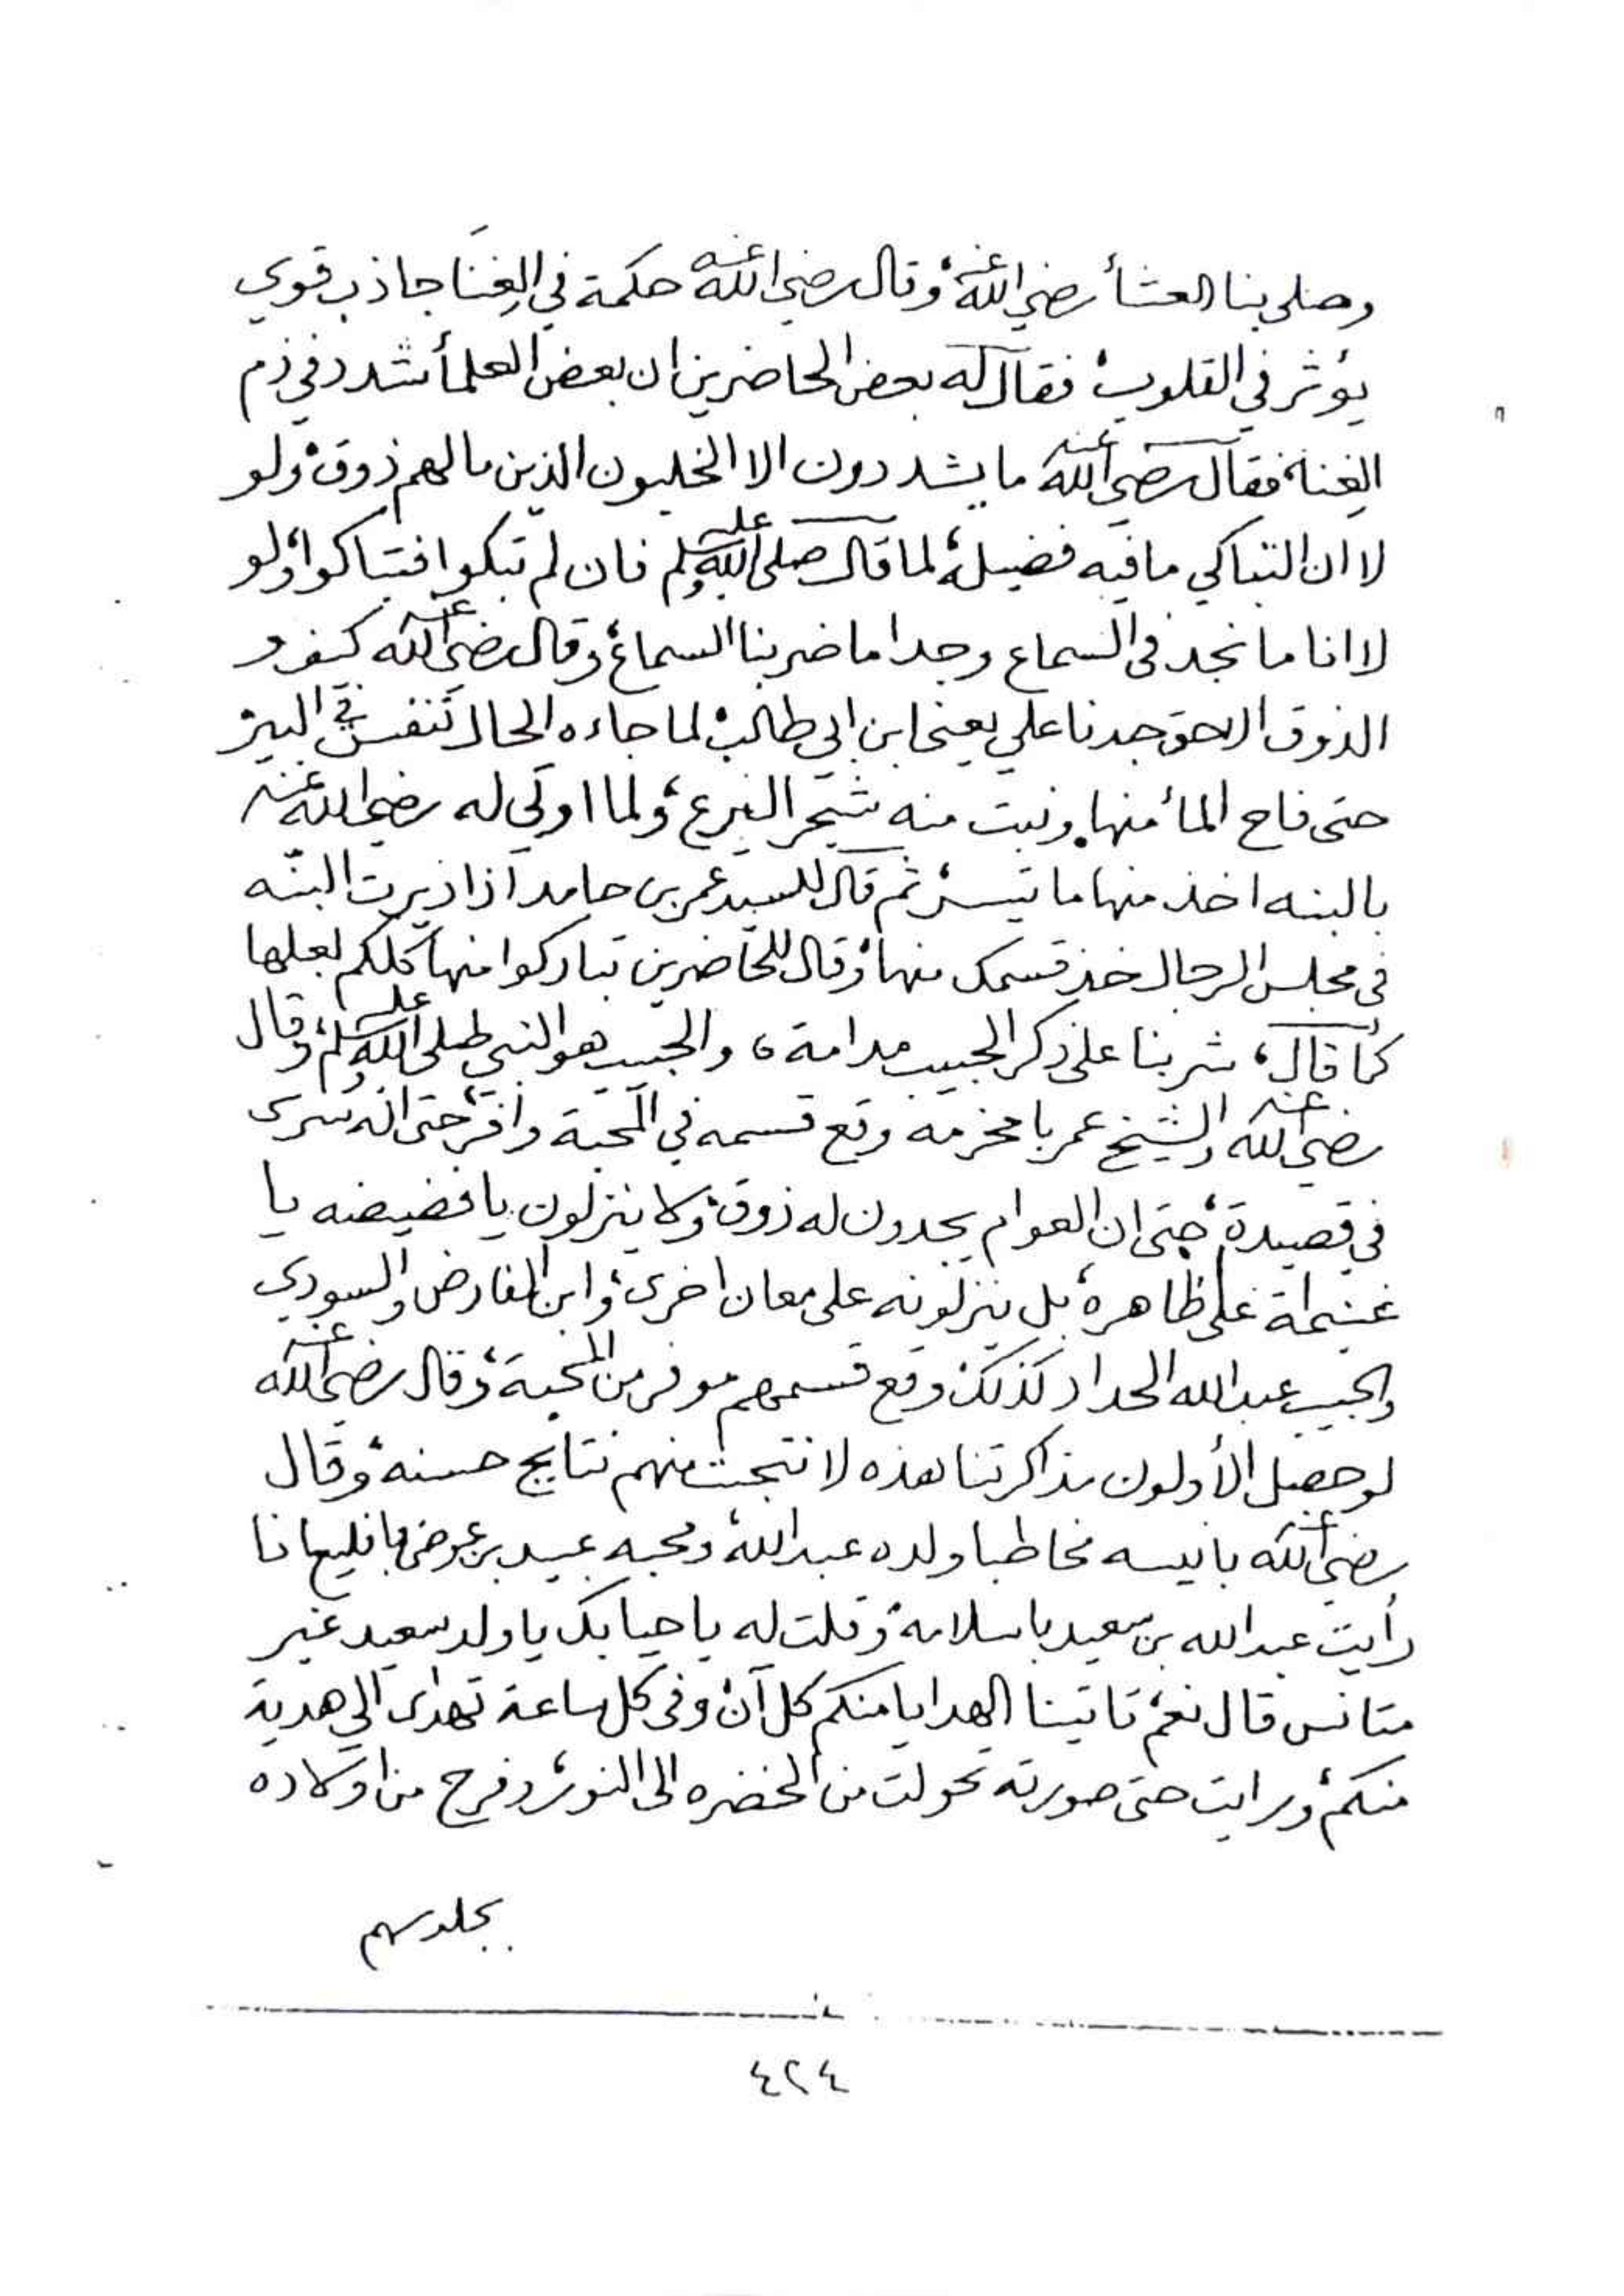 وصلى بنا العشأ رضي الله عنه، وقال رضي الله عنه حكمة في الغِنَا جاذب قوي
يؤثر في القلوب، فقال له بعض الحاضرين ان بعض العلمأ شدد في ذم
الغِنا، فقال رضي الله عنه ما يشددون الا الخليون الذين ما لهم ذوق، ولو
لا ان التباكي ما فيه فضيلة، لما قال صلى الله عليه وسلم فان لم تبكوا فتباكوا، ولو
لا انا ما نجد في السماع وجدا ما ضر بنا السماع، وقال رضي الله عنه
الذوق الحق جدنا علي يعني ابن ابي طالب، لما جاءه الحال تنفس في البير
حتى فاح المأ منها ونبت منه شجر اليرع، ولما اوتي له رضي الله عنه
بالبنه اخذ منها ما تيسر، ثم قال للسيد عمر بن حامد اذا ديرت البنّه
في مجلس الرجال خذ قسمك منها، وقال للحاضرين تباركوا منها كلكم لعلها
كما قال، شربنا على ذكر الحبيب مدامة، والحبيب هو النبي صلى الله عليه وسلم، وقال
رضي الله عنه والشيخ عمر بامخرمه وقع قسمه في المحبة وافر، حتى انه سرى
في قصيدة، حتى ان العوام يجدون له ذوق، ولا ينزلون يا فضيضه يا
على ظاهره، بل ينزلونه على معان اخرى، وابن الفارض والسودي
والحبيب عبدالله الحداد كذلك وقع قسمهم موفر من المحبة، وقال رضي الله عنه
لو حصل الأولون مذاكرتنا هذه لا نتجت منهم نتايج حسنه، وقال
رضي الله عنه بانيسه مخاطبا ولده عبدالله، ومحبه عبيد بن عوض بافليع انا
رأيت عبدالله بن سعيد باسلامه، وقلت له يا حيا بك يا ولد سعيد غير
متانس قال نعم، تاتينا الهدايا منكم كل آن، وفي كل ساعة تهدى الي هدية
منكم، ورايت حتى صورته تحولت من الخضره الى النور، وفرح من اولاده
بجلوسهم
٤٢٤